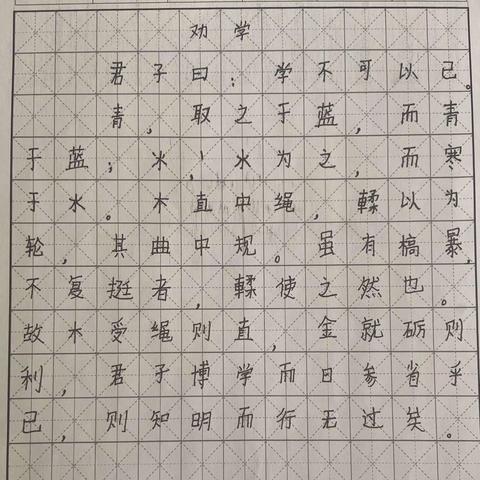 劝学
君子曰:学不可以己。
青,取之于蓝,而青
于蓝;冰,水为之,而寒
于水。木直中绳,輮以为
轮,其曲中规。虽有槁暴,
不复挺者,輮使之然也。
故木受绳则直,金就砺则
利,君子博学而日参省乎
己,则知明而行无过矣。